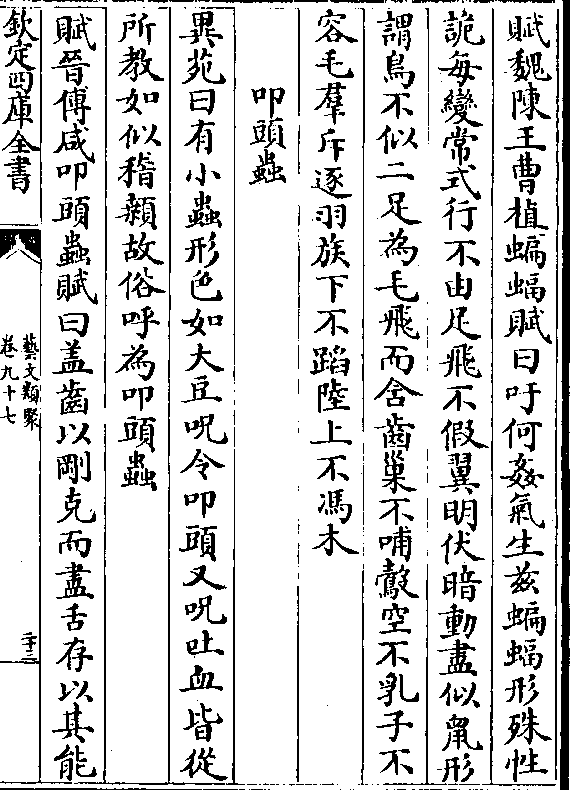 賦魏陳王曹植蝙蝠賦曰吁何姦氣生兹蝙蝠形殊性
詭每變常式行不由足飛不假翼明伏暗動盡似鼠形
謂鳥不似二足為毛飛而含齒巢不哺鷇空不乳子不
容毛羣斥逐羽族下不蹈陸上不馮木
叩頭蟲
異苑曰有小蟲形色如大豆呪令叩頭又呪吐血皆從
所教如似稽顙故俗呼為叩頭蟲
賦晉傅咸叩頭蟲賦曰盖齒以剛克而盡舌存以其能
欽定四庫全書
藝文類聚
卷九十七
二十三